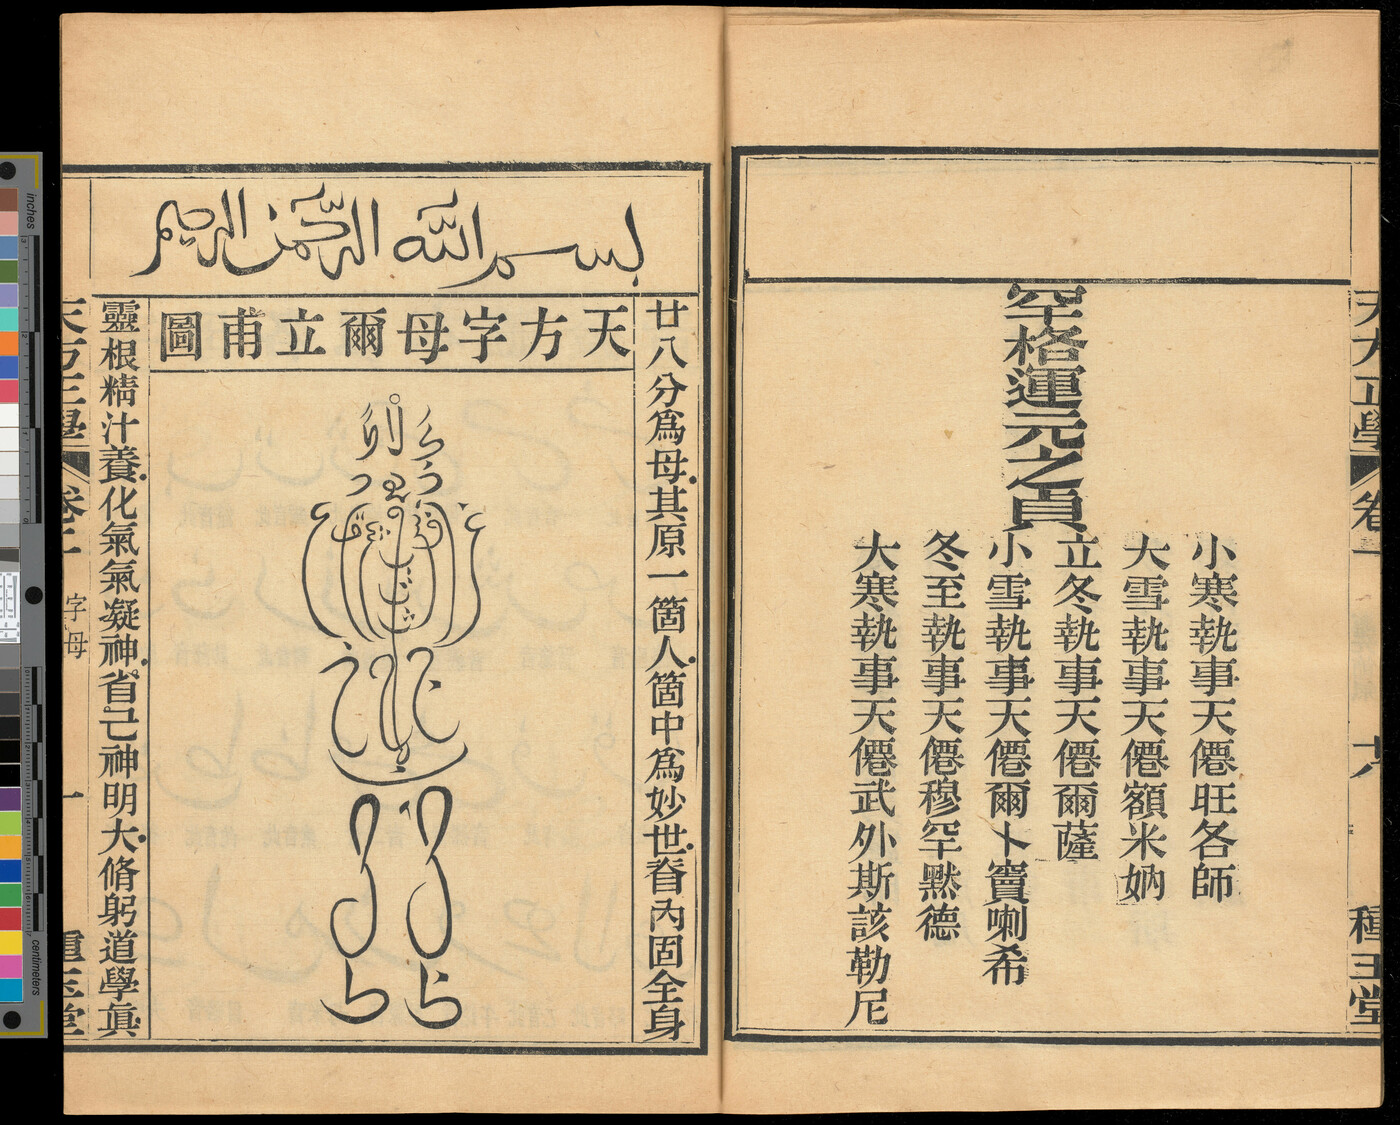 天方正學
卷一
种玉堂
小寒執事天僊旺各師
大雪執事天僊額米妠
立冬執事天僊爾薩
罕格運元之貞
小雪執事天僊爾卜竇喇希
冬至執事天僊穆罕默德
大寒執事天僊武外斯該勒尼
بسم الله الرحمن الرحيم
廿八分爲母其原一箇人箇中爲妙世眷內固全身
天方字母爾立甫圖
靈根精汁養化氣氣凝神省己神明大脩躬道學眞
天方正學
卷二
字母
一
種玉堂